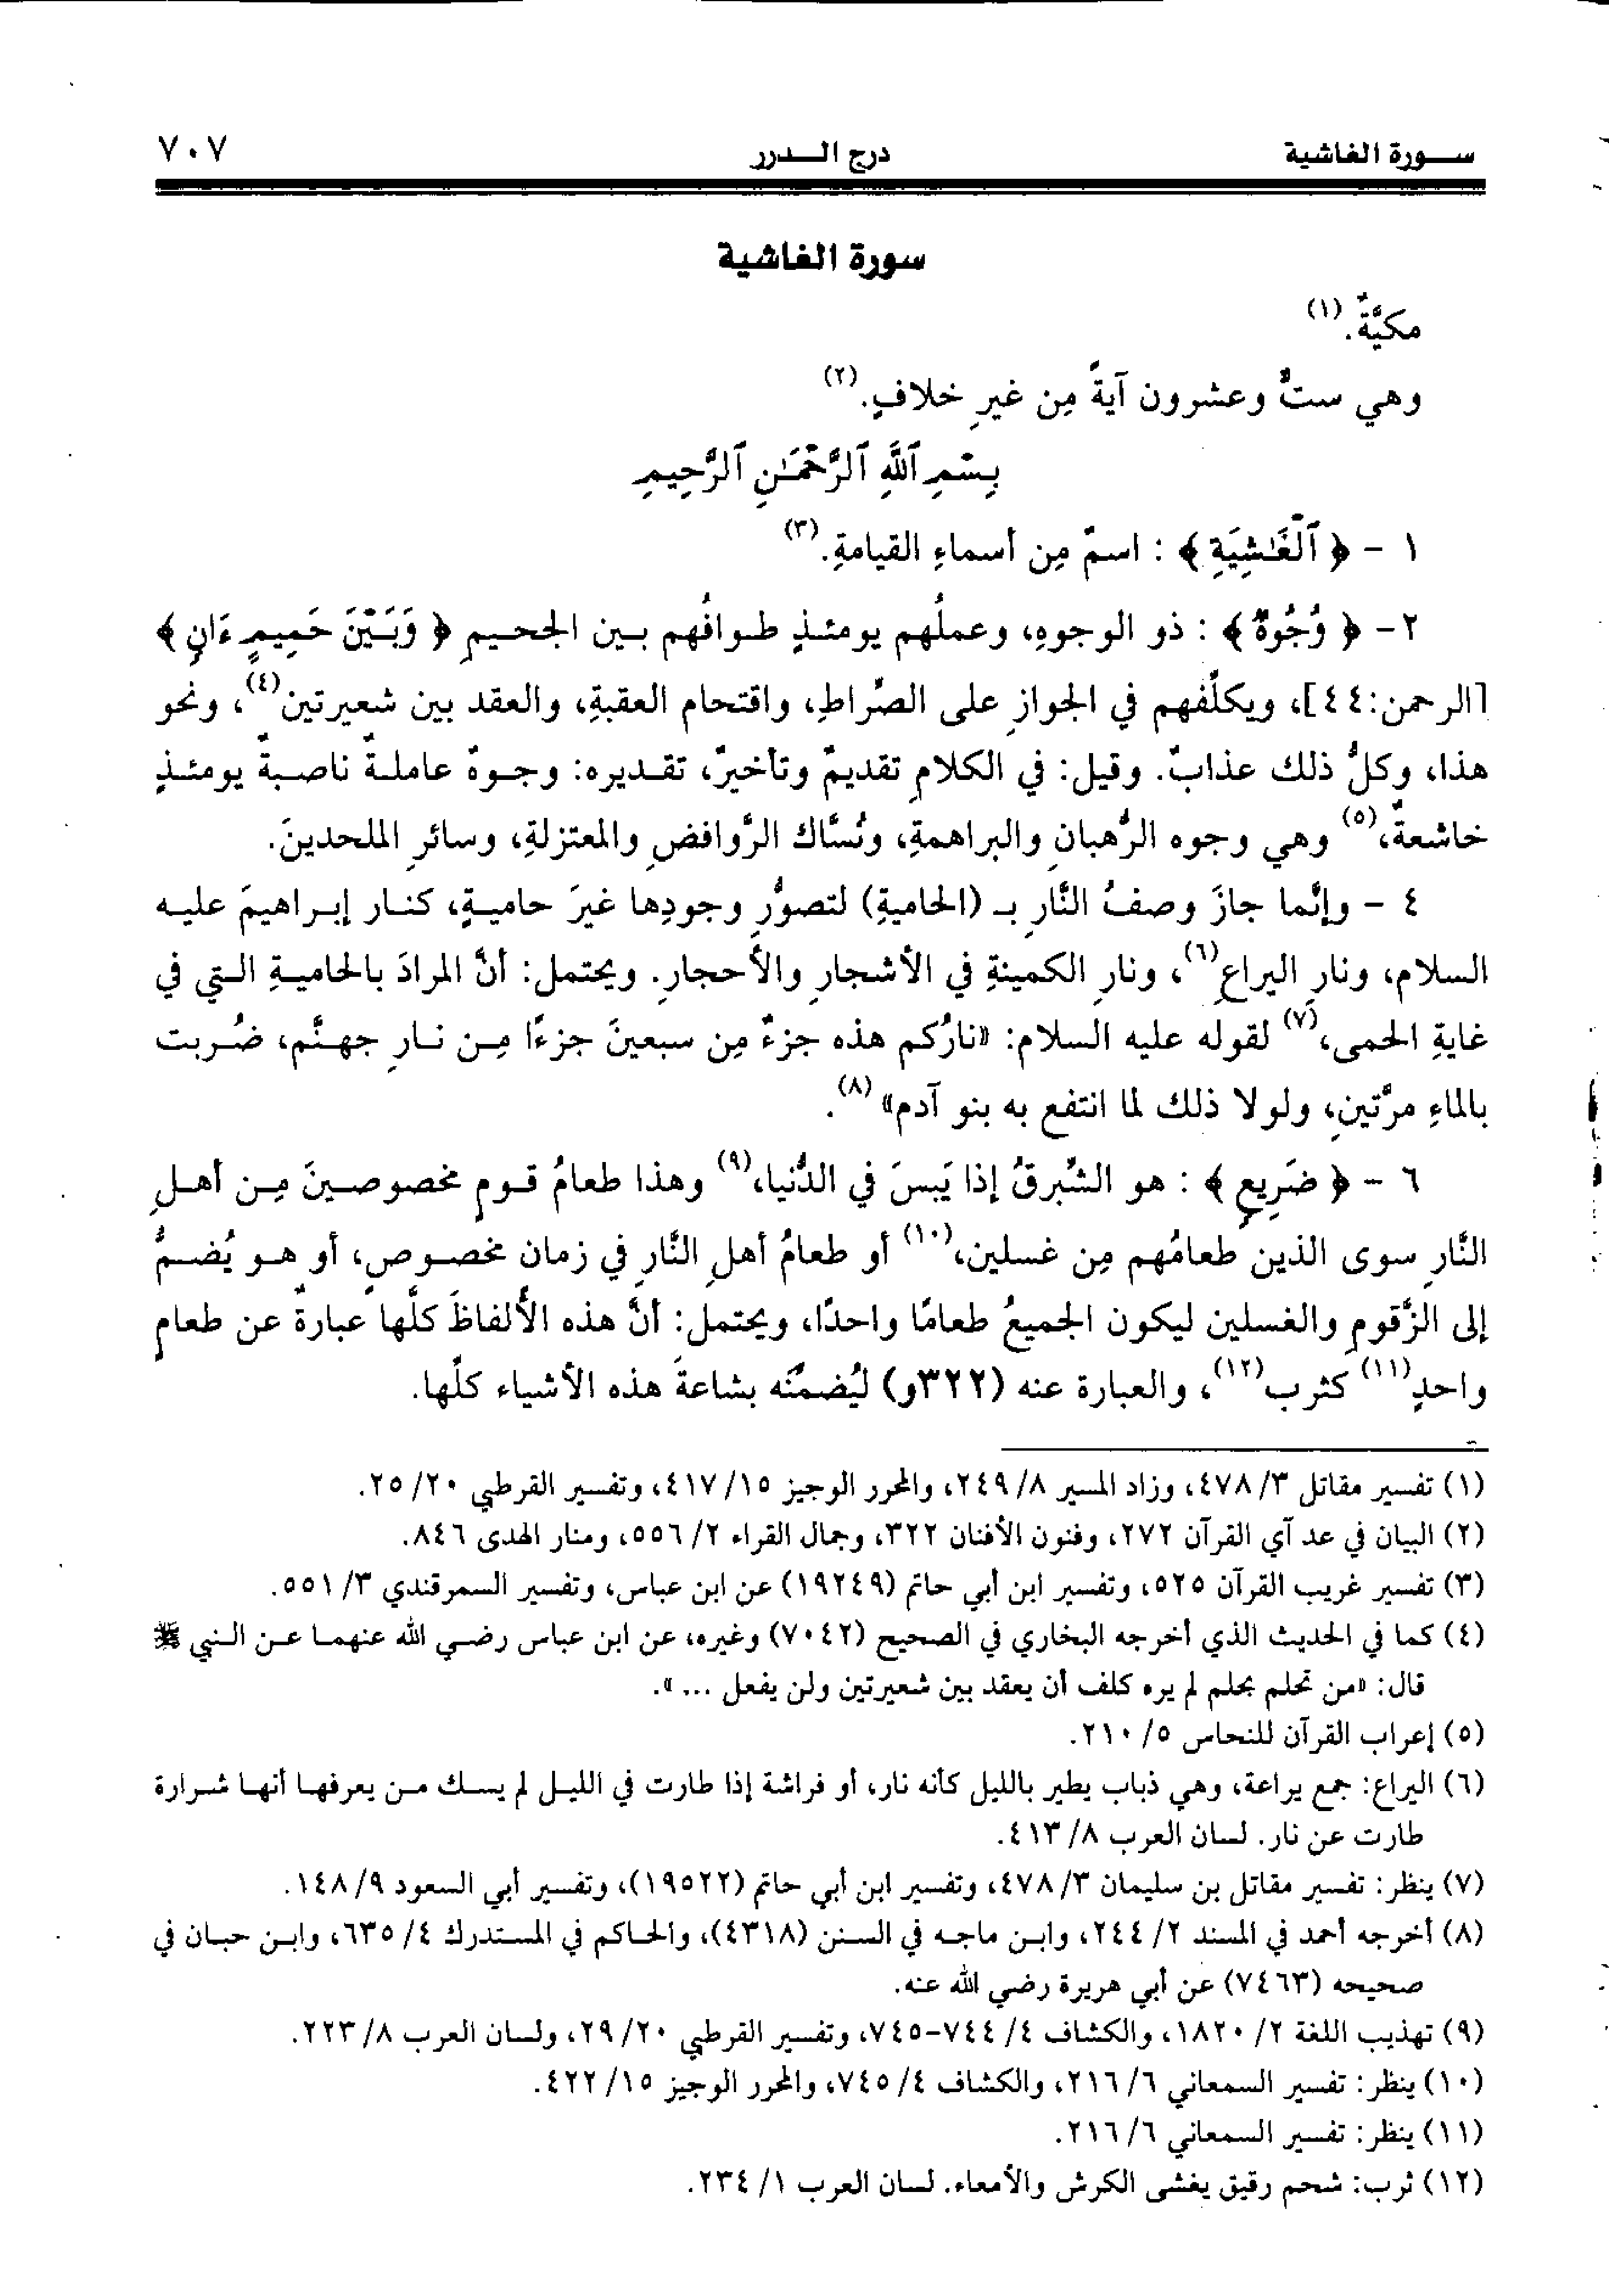 سورة الغاشية درج الدرر ٧٠٧
سورة الغاشية
مكيَّةٌ.(١)
وهي ستٌّ وعشرون آيةً مِن غيرِ خلافٍ.(٢)
بِسْمِ ٱللَّهِ ٱلرَّحْمَـٰنِ ٱلرَّحِيمِ
١ - ﴿ ٱلْغَـٰشِيَةِ ﴾ : اسمٌ مِن أسماءِ القيامةِ.(٣)
٢- ﴿ وُجُوهٌ ﴾ : ذو الوجوهِ، وعملُهم يومئذٍ طوافُهم بين الجحيمِ ﴿ وَبَيْنَ حَمِيمٍ ءَانٍ ﴾
[الرحمن:٤٤]، ويكلِّفهم في الجوازِ على الصِّراطِ، واقتحام العقبةِ، والعقد بين شعيرتين(٤)، ونحو
هذا، وكلُّ ذلك عذابٌ. وقيل: في الكلامِ تقديمٌ وتأخيرٌ، تقديره: وجوهٌ عاملةٌ ناصبةٌ يومئذٍ
خاشعةٌ،(٥) وهي وجوه الرُّهبانِ والبراهمةِ، ونُسَّاك الرَّوافضِ والمعتزلةِ، وسائرِ الملحدينَ.
٤ - وإنَّما جازَ وصفُ النَّارِ بـ (الحاميةِ) لتصوُّرِ وجودِها غيرَ حاميةٍ، كنار إبراهيمَ عليه
السلام، ونارِ اليراعِ(٦)، ونارِ الكمينةِ في الأشجارِ والأحجارِ. ويحتمل: أنَّ المرادَ بالحاميةِ التي في
غايةِ الحمى،(٧) لقوله عليه السلام: «نارُكم هذه جزءٌ مِن سبعينَ جزءًا مِن نارِ جهنَّم، ضُربت
بالماءِ مرَّتينِ، ولولا ذلك لما انتفع به بنو آدم»(٨).
٦ - ﴿ ضَرِيعٍ ﴾ : هو الشِّبرقُ إذا يَبسَ في الدُّنيا،(٩) وهذا طعامُ قومٍ مخصوصينَ مِن أهلِ
النَّارِ سوى الذين طعامُهم مِن غسلين،(١٠) أو طعامُ أهلِ النَّارِ في زمان مخصوصٍ، أو هو يُضمُّ
إلى الزَّقومِ والغسلين ليكون الجميعُ طعامًا واحدًا، ويحتمل: أنَّ هذه الألفاظَ كلَّها عبارةٌ عن طعامٍ
واحدٍ(١١) كثرب(١٢)، والعبارة عنه (٣٢٢و) ليُضمنَّه بشاعةَ هذه الأشياء كلِّها.
(١) تفسير مقاتل ٣/ ٤٧٨، وزاد المسير ٨/ ٢٤٩، والمحرر الوجيز ١٥/ ٤١٧، وتفسير القرطبي ٢٠/ ٢٥.
(٢) البيان في عد آي القرآن ٢٧٢، وفنون الأفنان ٣٢٢، وجمال القراء ٢/ ٥٥٦، ومنار الهدى ٨٤٦.
(٣) تفسير غريب القرآن ٥٢٥، وتفسير ابن أبي حاتم (١٩٢٤٩) عن ابن عباس، وتفسير السمرقندي ٣/ ٥٥١.
(٤) كما في الحديث الذي أخرجه البخاري في الصحيح (٧٠٤٢) وغيره، عن ابن عباس رضي الله عنهما عن النبي ﷺ
قال: «من تحلم بحلم لم يره كلف أن يعقد بين شعيرتين ولن يفعل ... ».
(٥) إعراب القرآن للنحاس ٥/ ٢١٠.
(٦) اليراع: جمع يراعة، وهي ذباب يطير بالليل كأنه نار، أو فراشة إذا طارت في الليل لم يسك من يعرفها أنها شرارة
طارت عن نار. لسان العرب ٨/ ٤١٣.
(٧) ينظر: تفسير مقاتل بن سليمان ٣/ ٤٧٨، وتفسير ابن أبي حاتم (١٩٥٢٢)، وتفسير أبي السعود ٩/ ١٤٨.
(٨) أخرجه أحمد في المسند ٢/ ٢٤٤، وابن ماجه في السنن (٤٣١٨)، والحاكم في المستدرك ٤/ ٦٣٥، وابن حبان في
صحيحه (٧٤٦٣) عن أبي هريرة رضي الله عنه.
(٩) تهذيب اللغة ٢/ ١٨٢٠، والكشاف ٤/ ٧٤٤-٧٤٥، وتفسير القرطبي ٢٠/ ٢٩، ولسان العرب ٨/ ٢٢٣.
(١٠) ينظر: تفسير السمعاني ٦/ ٢١٦، والكشاف ٤/ ٧٤٥، والمحرر الوجيز ١٥/ ٤٢٢.
(١١) ينظر: تفسير السمعاني ٦/ ٢١٦.
(١٢) ثرب: شحم رقيق يغشى الكرش والأمعاء. لسان العرب ١/ ٢٣٤.